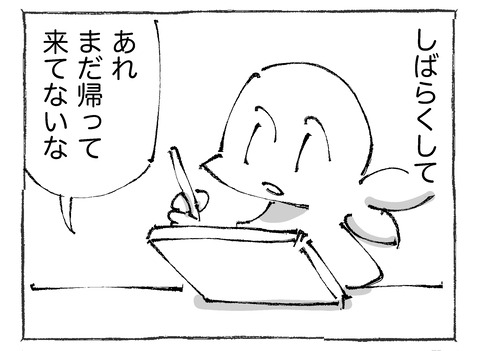 しばらくして
あれ
まだ帰って
来てないな